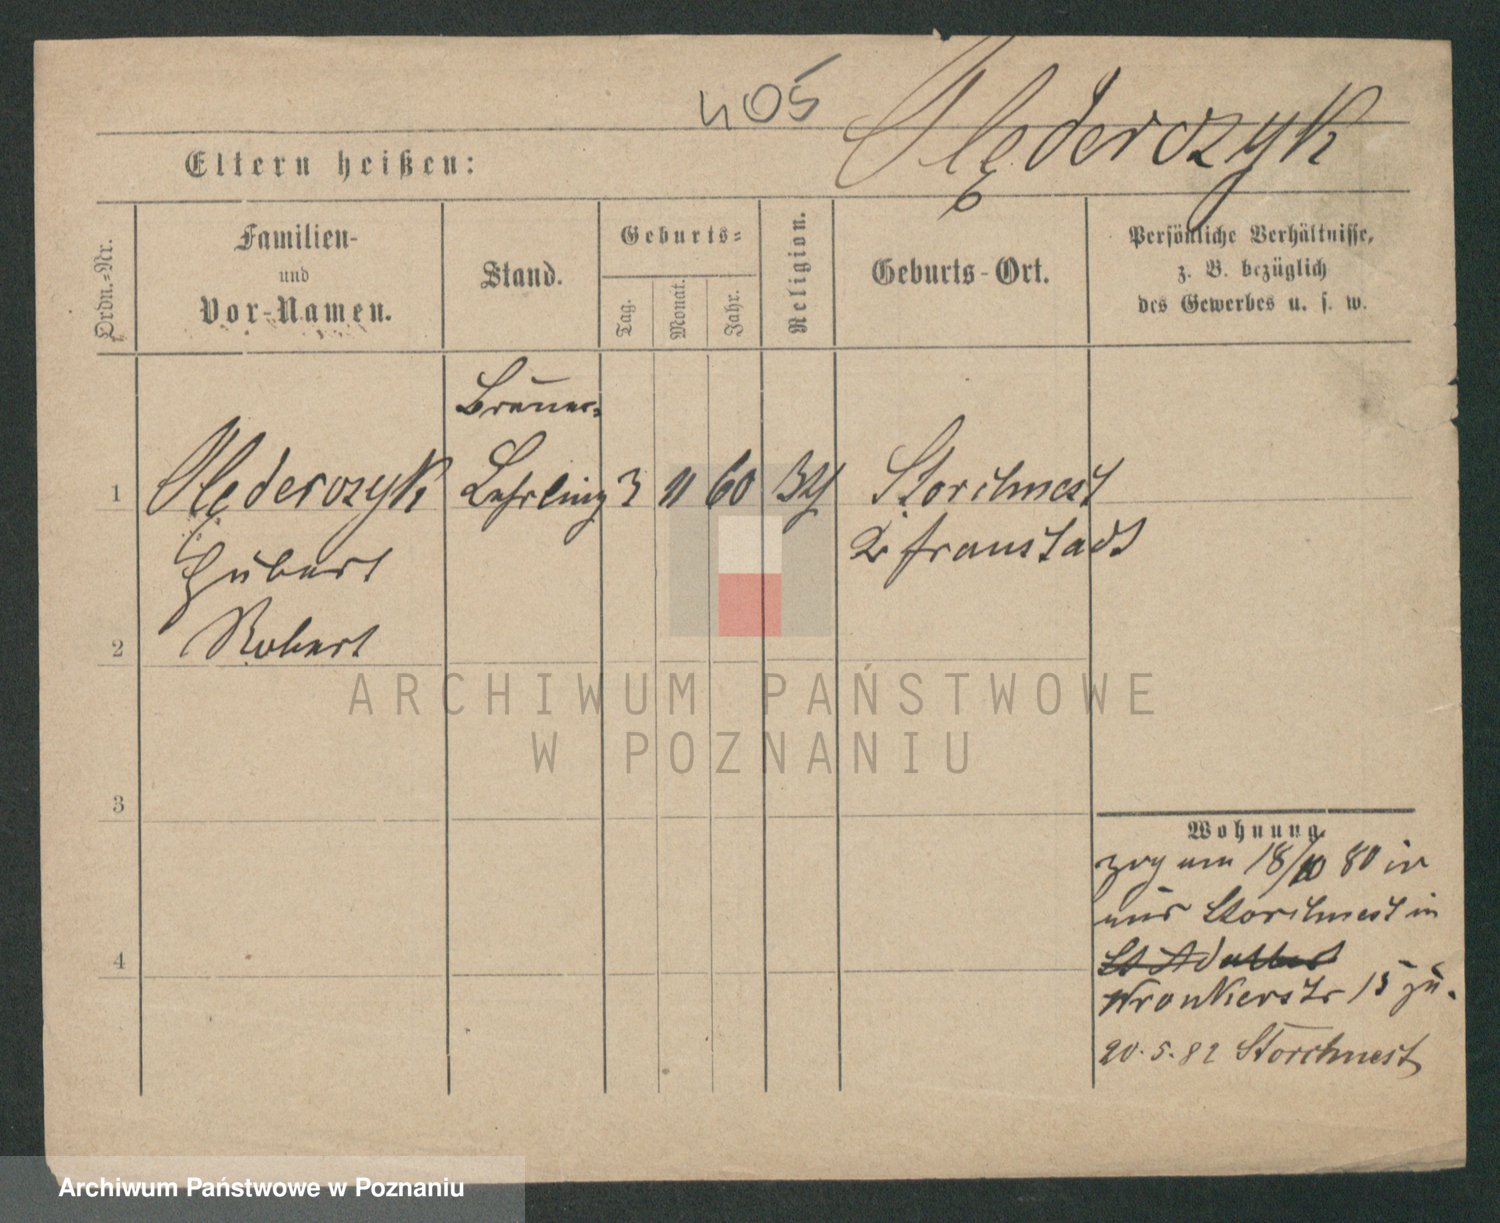 405
Olęderczyk
Eltern heißen:
Ordn.-Nr.
Familien-
und
Vor-Namen.
Stand.
Geburts-
Tag.
Monat.
Jahr.
Religion.
Geburts-Ort.
Persönliche Verhältnisse,
z. B. bezüglich
des Gewerbes u. s. w.
Brauer-
1 Olęderczyk Lehrling 3 11 60 Storchnest
Kr Fraustadt
Hubert
2 Robert
3
4
Wohnung
zog am 18/10 80
aus Storchnest in
St Adalbert
Wronkerstr 15 zu.
20.5.82 Storchnest
ARCHIWUM PAŃSTWOWE
W POZNANIU
Archiwum Państwowe w Poznaniu